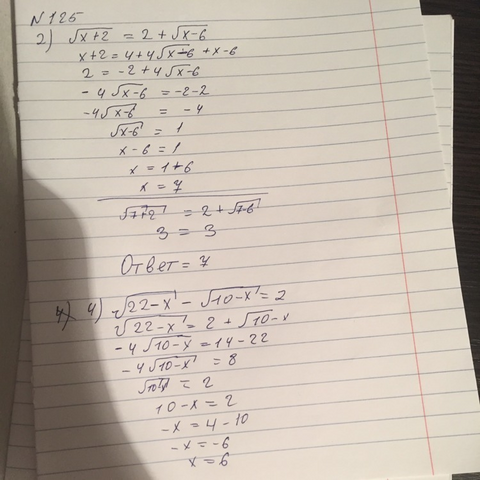 N 125
2) √x+2 = 2 + √x-6
x+2 = 4+4√x-6 + x-6
2 = -2 + 4√x-6
-4√x-6 = -2-2
-4√x-6 = -4
√x-6 = 1
x-6 = 1
x = 1+6
x = 7
√7+2 = 2 + √7-6
3 = 3
Ответ = 7
4) √22-x - √10-x = 2
√22-x = 2 + √10-x
-4√10-x = 14-22
-4√10-x = 8
√10-x = 2
10-x = 2
-x = 4-10
-x = -6
x = 6